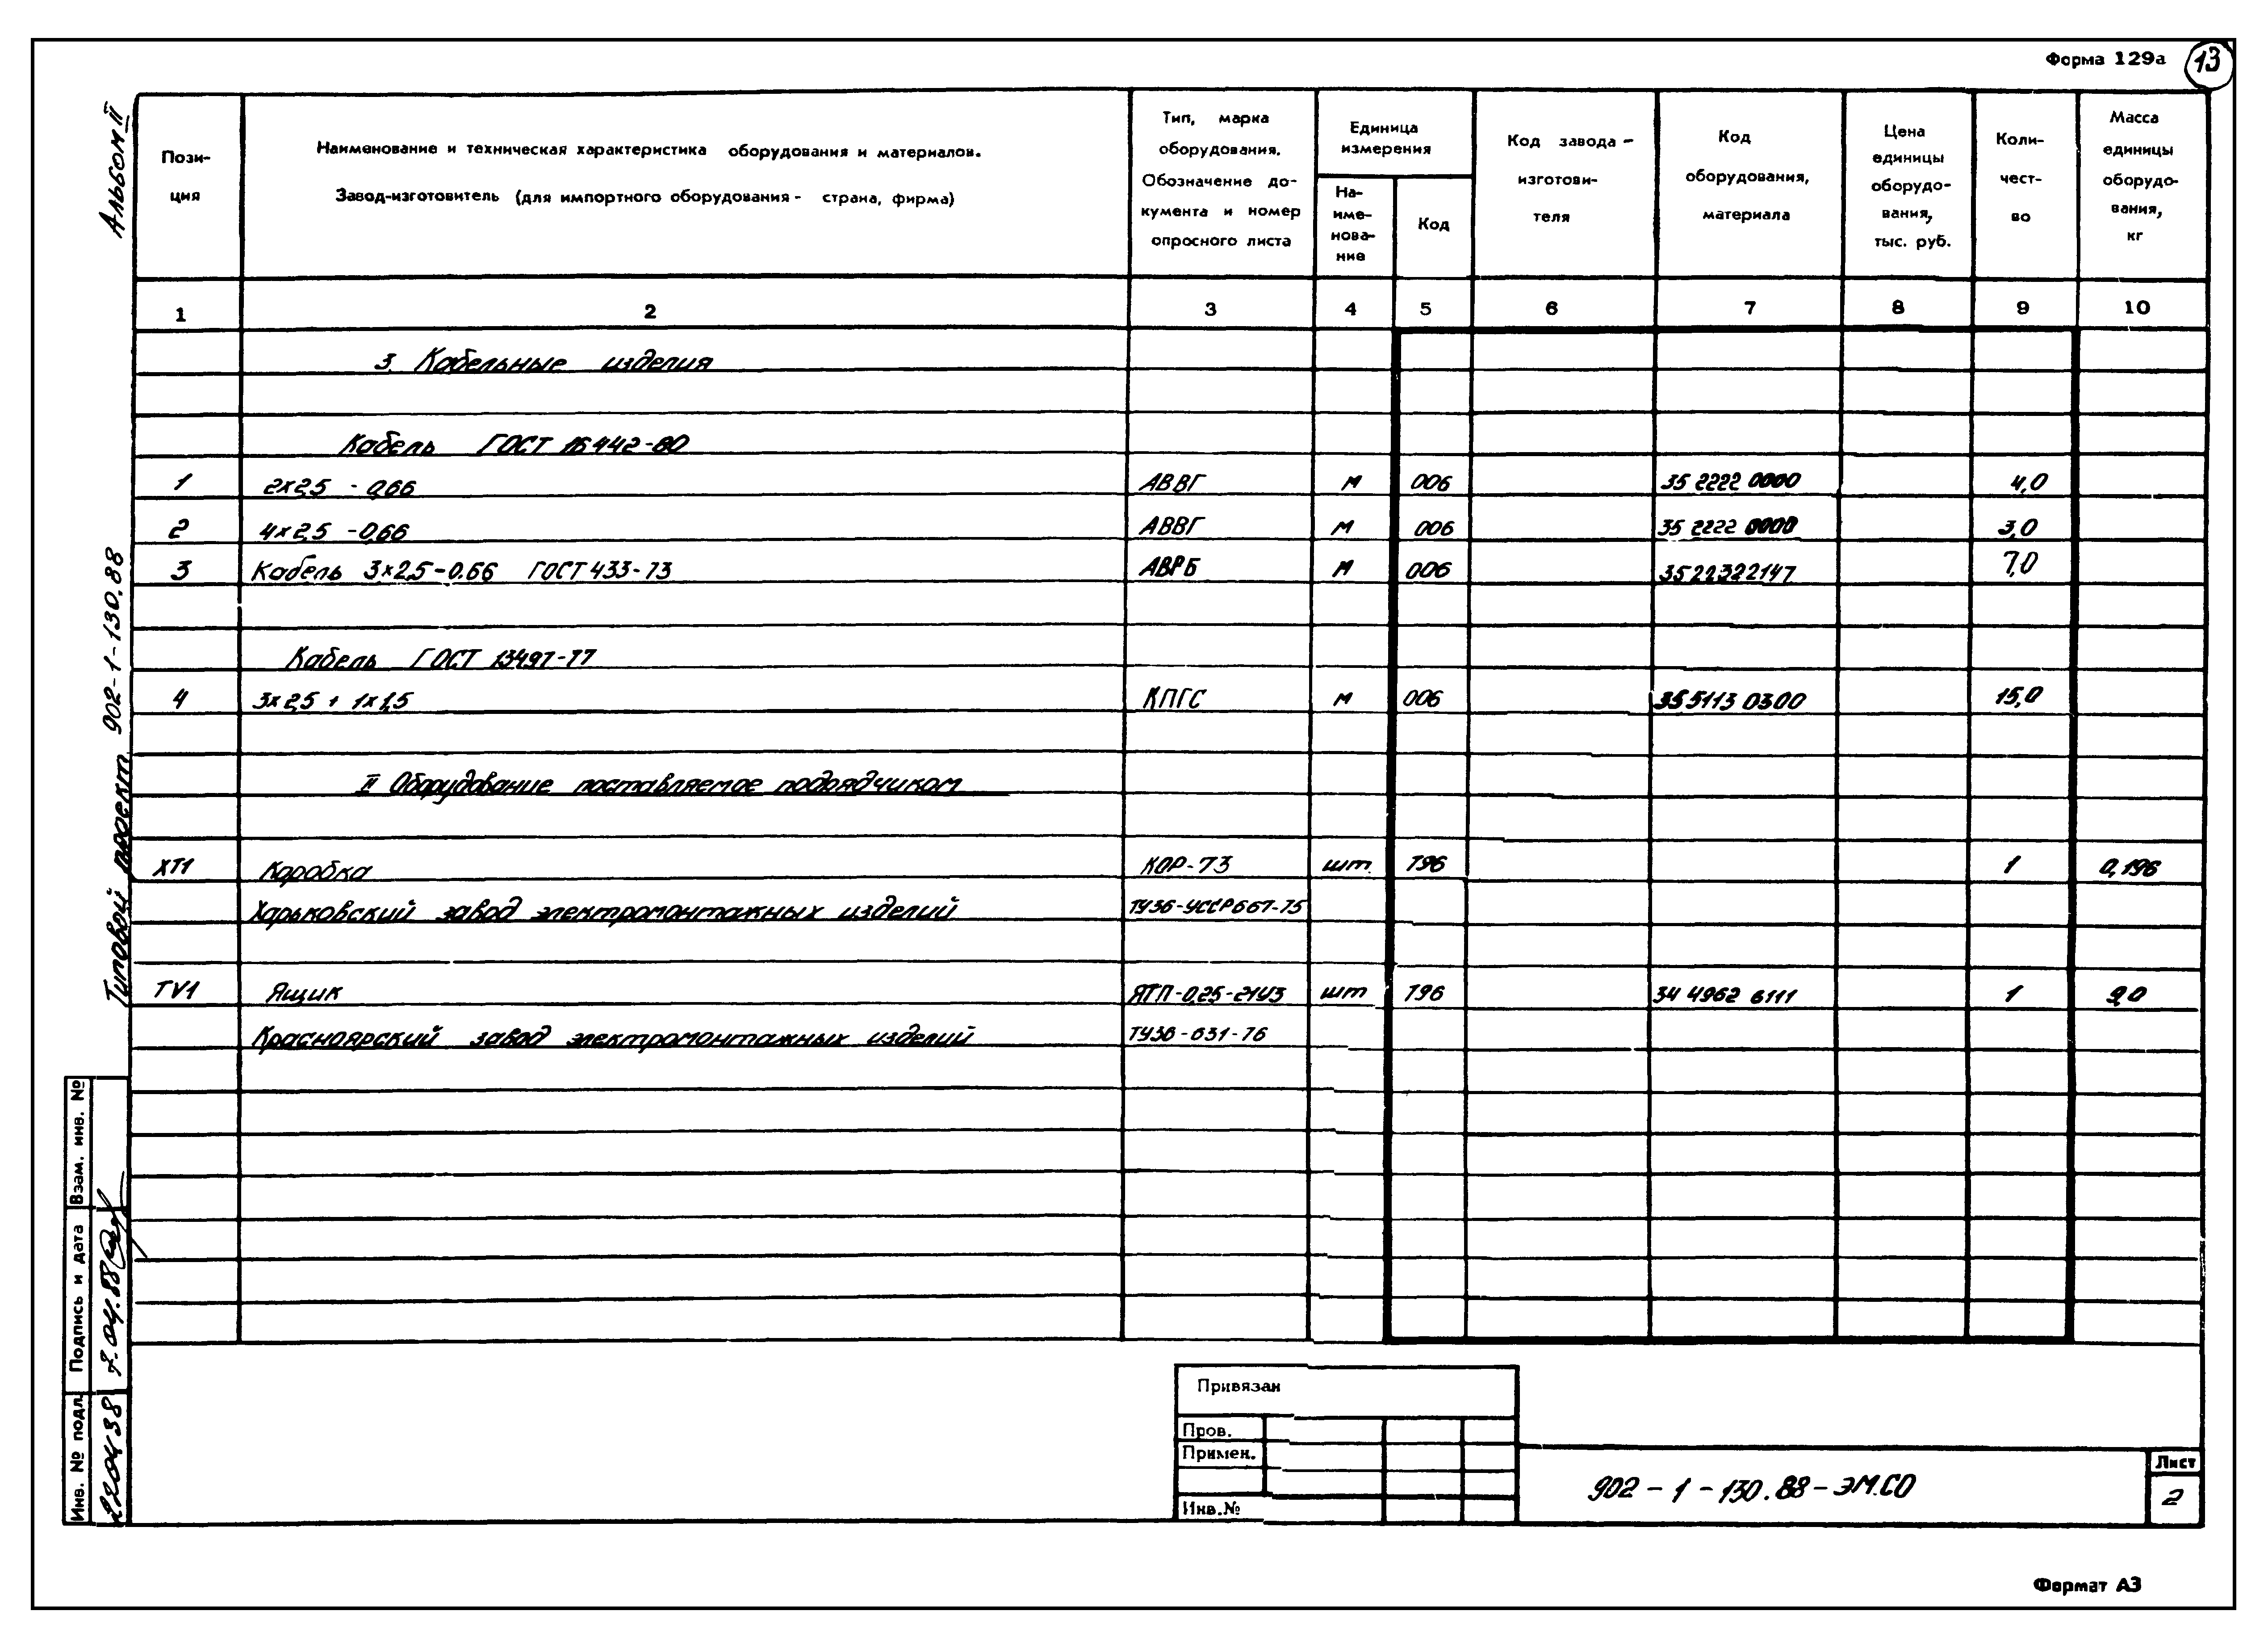 Форма 129а
13
Альбом II
Типовой проект 902-1-130.88
Пози-
ция
Наименование и техническая характеристика оборудования и материалов.
Завод-изготовитель (для импортного оборудования - страна, фирма)
Тип, марка
оборудования.
Обозначение до-
кумента и номер
опросного листа
Единица
измерения
На-
име-
нова-
ние
Код
Код завода -
изготови-
теля
Код
оборудования,
материала
Цена
единицы
оборудо-
вания,
тыс. руб.
Коли-
чест-
во
Масса
единицы
оборудо-
вания,
кг
1 2 3 4 5 6 7 8 9 10
3. Кабельные изделия
Кабель ГОСТ 16442-80
1 2х2,5 - 0,66 АВВГ м 006 35 2222 0000 4,0
2 4х2,5 -0,66 АВВГ м 006 35 2222 0000 3,0
3 Кабель 3х2,5-0.66 ГОСТ 433-73 АВРБ м 006 3522322147 7,0
Кабель ГОСТ 13497-77
4 3х2,5 + 1х1,5 КПГС м 006 35 5113 0300 15,0
II Оборудование поставляемое подрядчиком
ХТ1 Коробка КОР-73 шт. 796 1 0,196
Харьковский завод электромонтажных изделий ТУ36-УССР667-75
TV1 Ящик ЯТП-0,25-21У3 шт 796 34 4962 6111 1 9,0
Красноярский завод электромонтажных изделий ТУ36-631-76
Взам. инв. №
Подпись и дата
7.04.88
Инв. № подл.
Привязан
Пров.
Примен.
Инв.№
902-1-130.88-ЭМ.СО
Лист
2
Формат А3